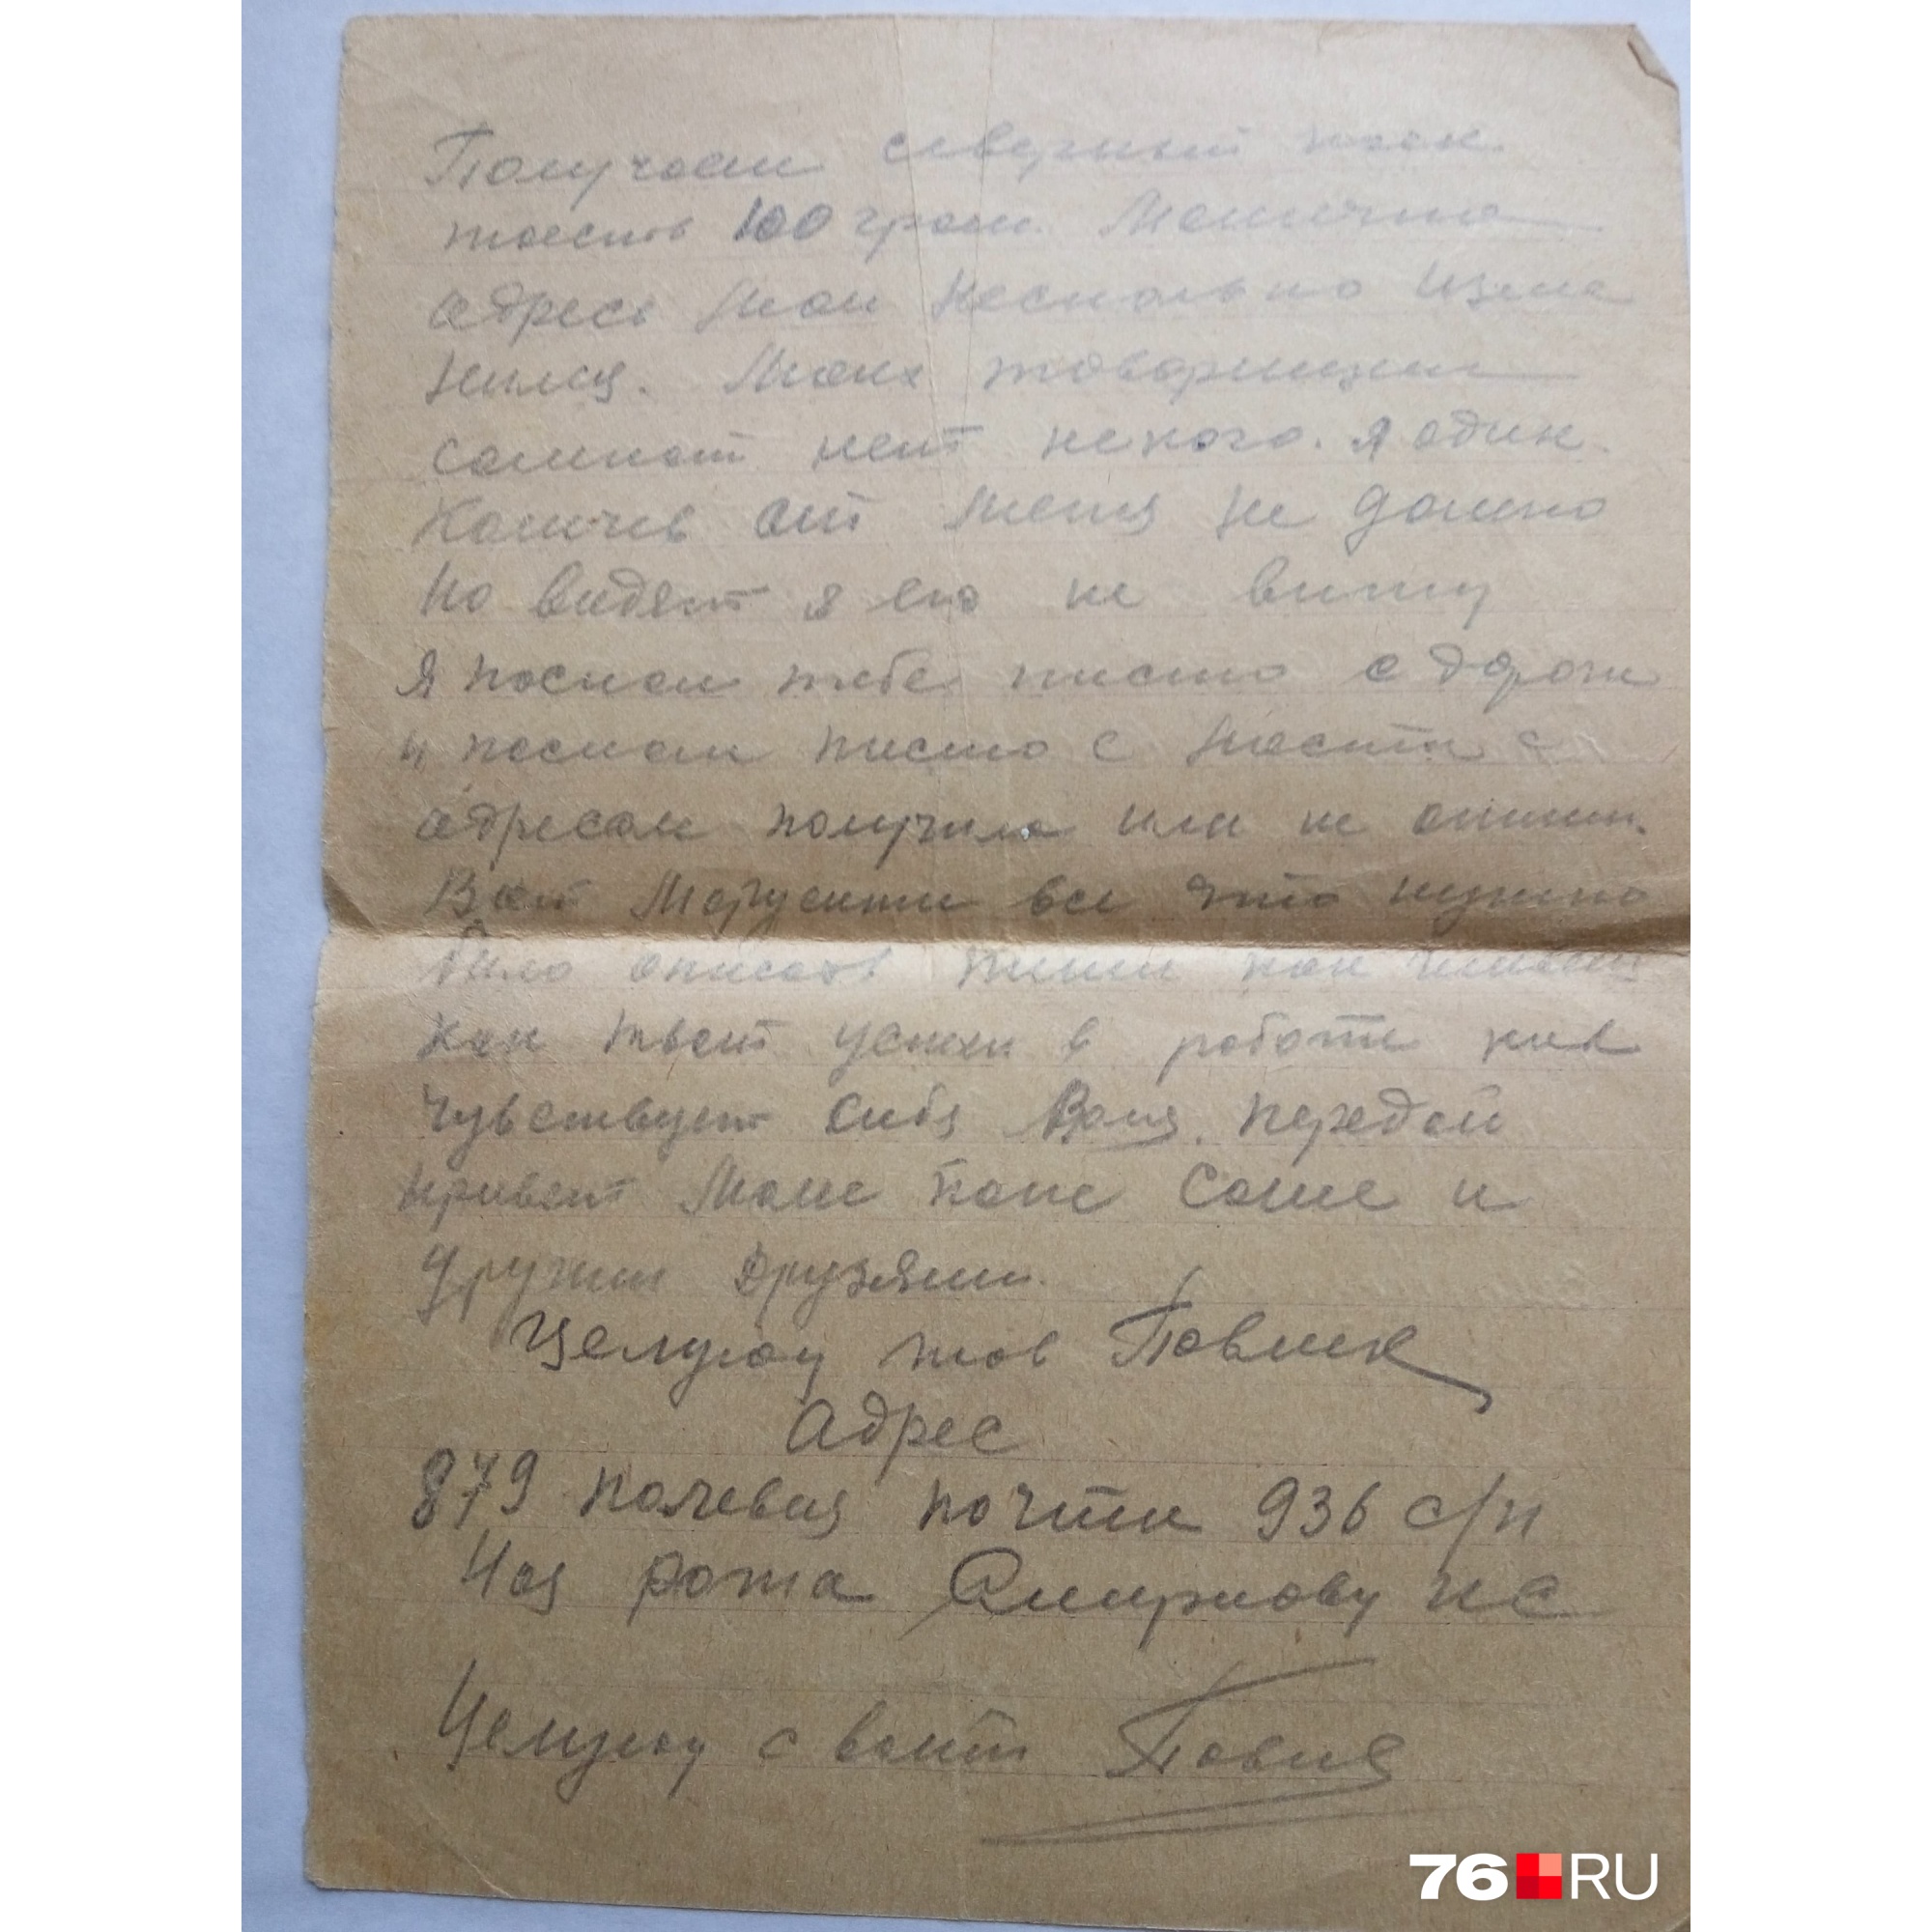 Получаем северный паек
тоесть 100 грам. Манечка
адрес мой несколько изме
нился. Моих товарищей
самной нет некого. Я один.
от меня не далеко
но видет я его не вижу
Я послал тебе писмо с дороги
и послал писмо с места с
адресом получила или не
Вот Марусинка все что нужно
было описать пиши как
как твои успехи в работе как
чувствует себя Валя. передай
привет маме папе Саше и
другим друзям.
Целую твой Павлик
Адрес
879 полевая почта 936 с/п
рота Смирнову пс
Целую с вами Павля
76.RU